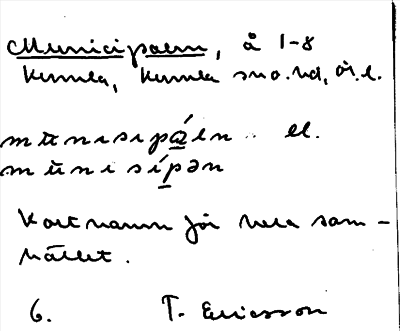 Municipalen, å 1-8
Kumla, Kumla sn o. hd, Ör. l.
mūnisipá̱len .. el.
mūnisíp̱ən
Kort namn för hela sam-
hället.
6. T. Ericsson